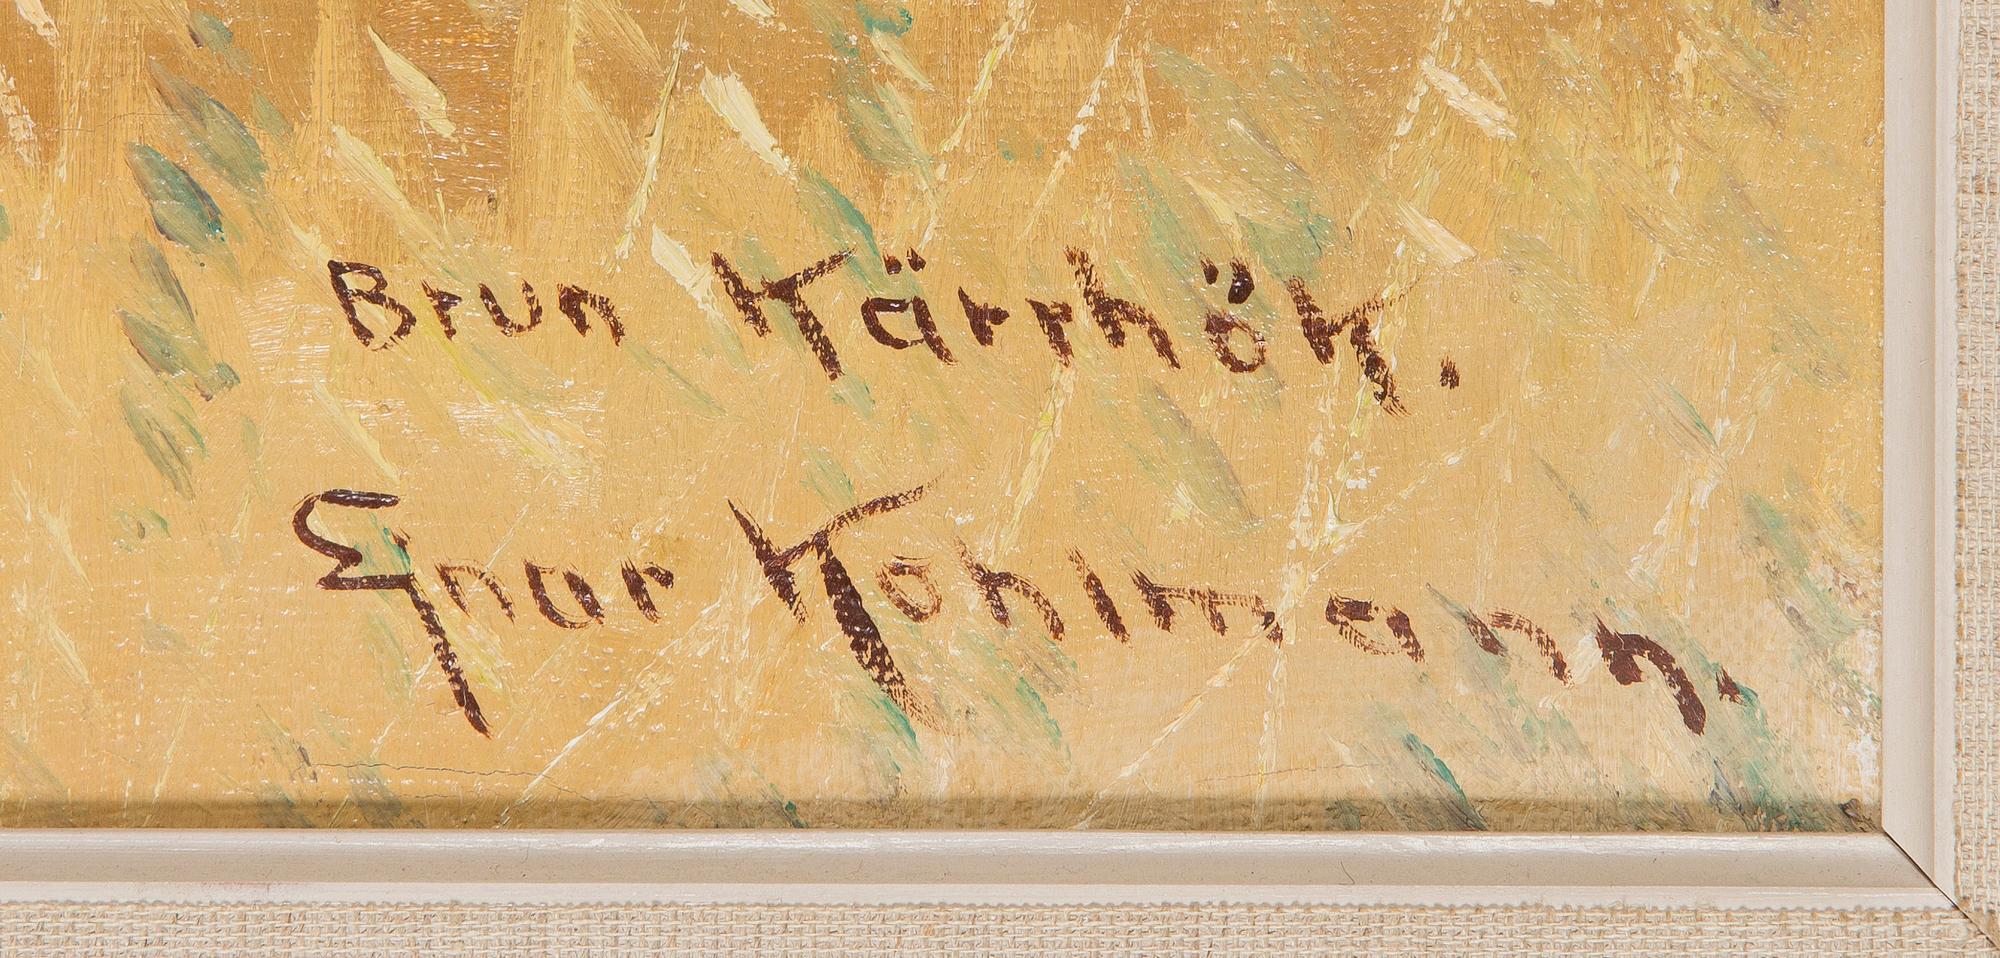 Brun Kärrhök.
Ejnar Kohlmann.